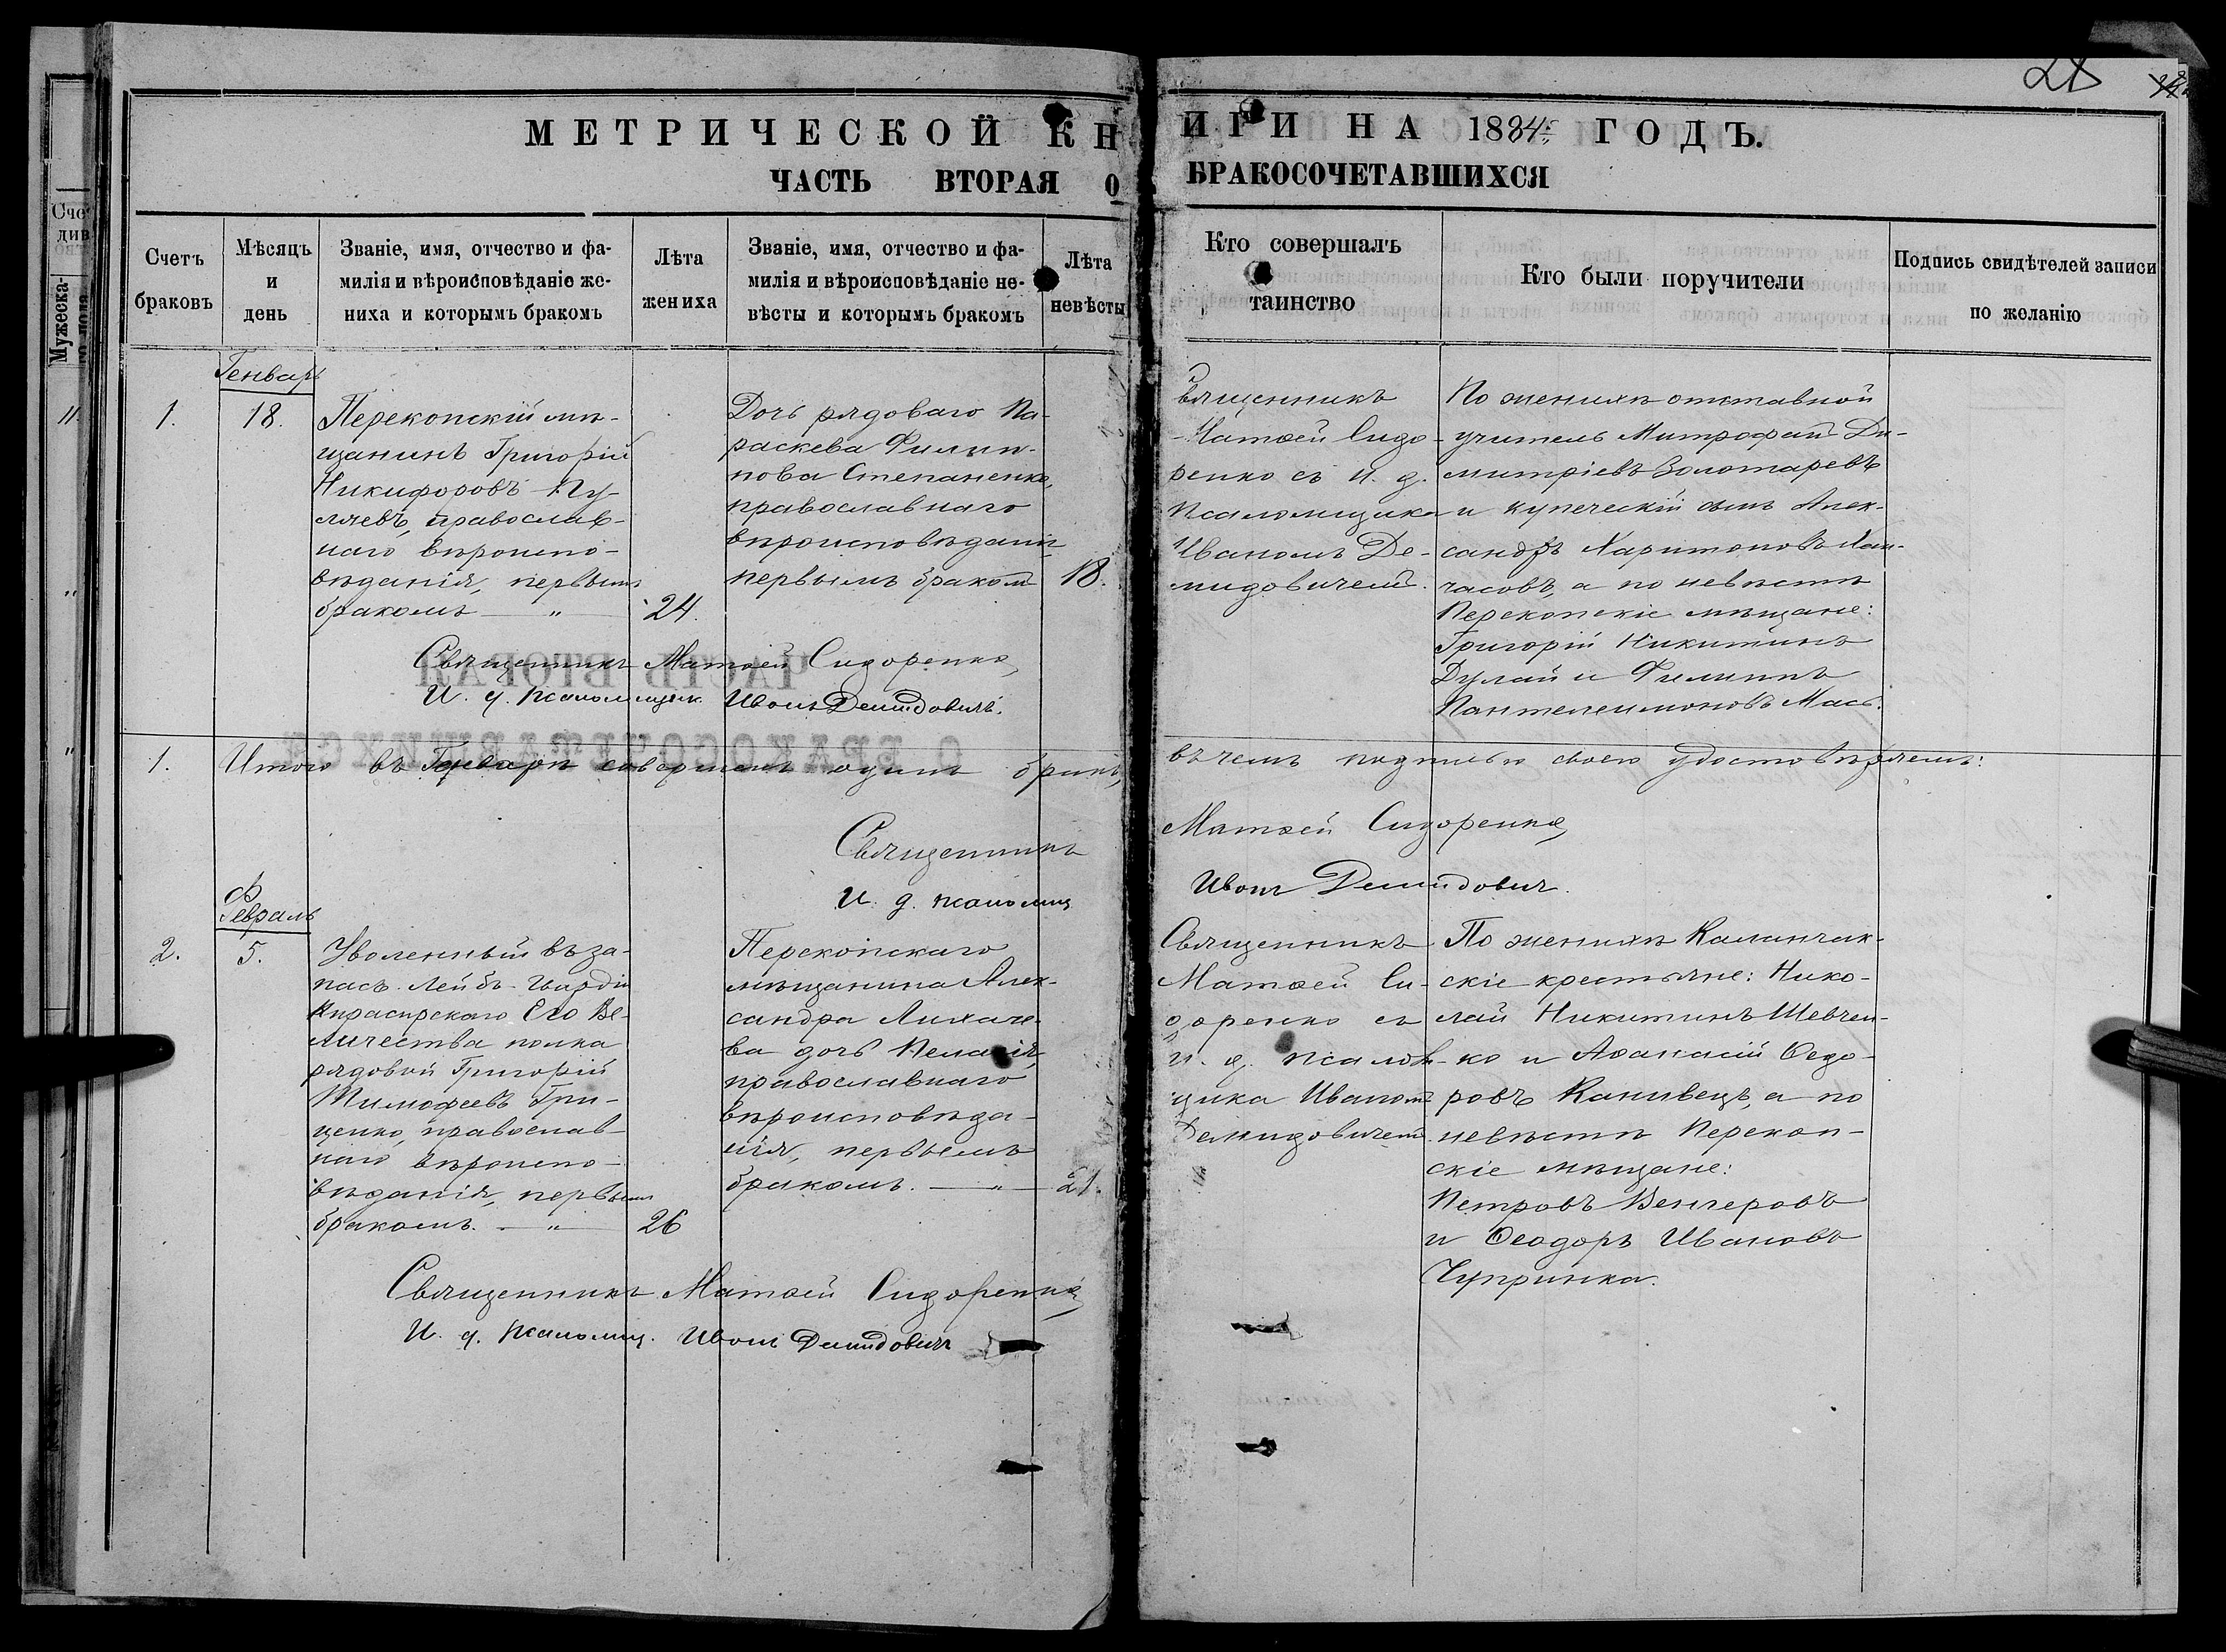 28
МЕТРИЧЕСКОЙ КНИГИ НА 1884 ГОДЪ.
ЧАСТЬ ВТОРАЯ О БРАКОСОЧЕТАВШИХСЯ
Счетъ
браковъ
Мѣсяцъ
и
день
Званіе, имя, отчество и фа-
милія и вѣроисповѣданіе же-
ниха и которымъ бракомъ
Лѣта
жениха
Званіе, имя, отчество и фа-
милія и вѣроисповѣданіе не-
вѣсты и которымъ бракомъ
Лѣта
невѣсты
Кто совершалъ
таинство
Кто были поручители
Подпись свидѣтелей записи
по желанію
Генварь
1.
18.
Перекопскій мѣ-
щанинъ Григорій
Никифоровъ Пу-
ляевъ, православ-
наго вѣроиспо-
вѣданія, первымъ
бракомъ — „ —
24.
Дочь рядоваго Па-
раскева Филип-
пова Степаненко,
православнаго
вѣроисповѣданія
первымъ бракомъ
18.
Священникъ
Матѳей Сидо-
ренко съ и. д.
псаломщика
Иваномъ Де-
мидовичемъ.
По женихѣ отставной
учитель Митрофанъ Ди-
митріевъ Золотаревъ
и купеческій сынъ Алек-
сандръ Харитоновъ
часовъ, а по невѣстѣ
Перекопскіе мѣщане:
Григорій Никитинъ
Дулай и Филиппъ
Пантелеимоновъ Мась.
Священникъ Матѳей Сидоренко,
И. д. псаломщик. Иванъ Демидовичъ.
1. Итого въ Генварѣ совершенъ одинъ бракъ, въ чемъ подписью своею удостовѣряемъ:
Священникъ Матѳей Сидоренко,
И. д. псаломщ. Иванъ Демидович.
Февраль
2.
5.
Уволенный въ за-
пасъ Лейбъ-Гвардіи
Кирасирскаго Его Ве-
личества полка
рядовой Григорій
Тимофеевъ Гри-
ценко, православ-
наго вѣроиспо-
вѣданія, первымъ
бракомъ. — „ —
26
Перекопскаго
мѣщанина Алек-
сандра Лихаче-
ва дочь Пелагія,
православнаго
вѣроисповѣда-
нія, первымъ
бракомъ. — „ —
21.
Священникъ
Матѳей Си-
доренко съ
и. д. псалом-
щика Иваномъ
Демидовичемъ.
По женихѣ Каланчак-
скіе крестьяне: Нико-
лай Никитинъ Шевчен-
ко и Аѳанасій Ѳедо-
ровъ Канивецъ, а по
невѣстѣ Перекоп-
скіе мѣщане:
Петровъ Венгеровъ
и Ѳеодоръ Ивановъ
Чупринка.
Священникъ Матѳей Сидоренко,
И. д. псаломщ. Иванъ Демидович